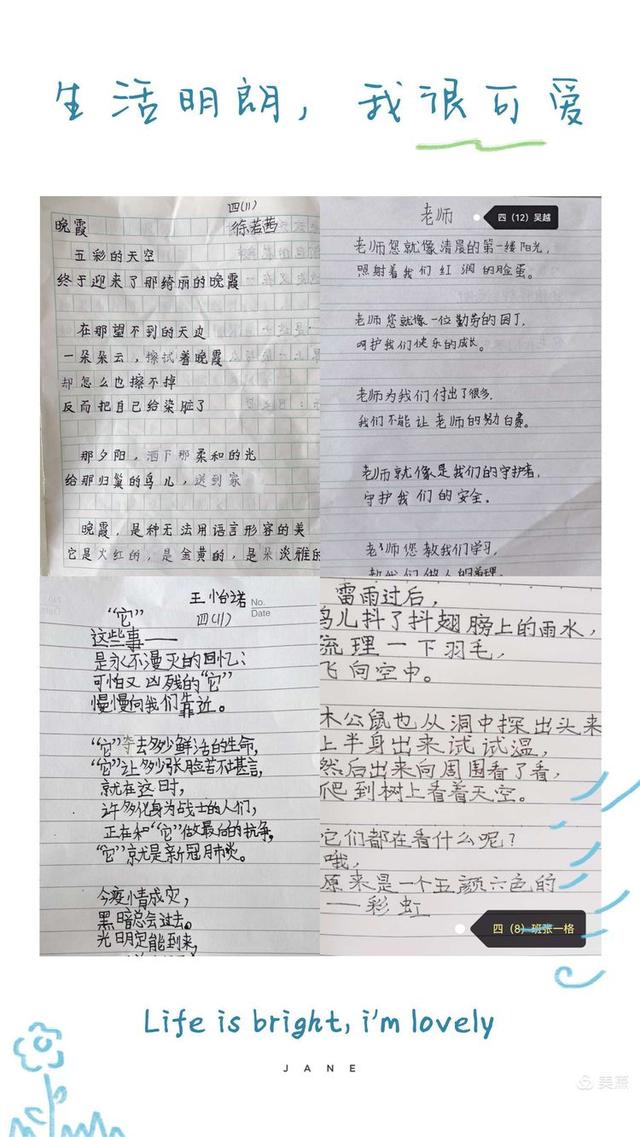 生活明朗，我很可爱
四(11)
晚霞 徐若茜
五彩的天空
终于迎来了那绮丽的晚霞
在那望不到的天边
一朵朵云，擦试着晚霞
却怎么也擦不掉
反而把自己给染脏了
那夕阳，洒下那柔和的光
给那归巢的鸟儿，送到家
晚霞，是种无法用语言形容的美
它是火红的，是金黄的，是朵淡雅的
老师
四（12）吴越
老师您就像清晨的第一缕阳光，
照射着我们红润的脸蛋。
老师您就像一位勤劳的园丁，
呵护我们快乐的成长。
老师为我们付出了很多，
我们不能让老师的努力白费。
老师就像是我们的守护者，
守护我们的安全。
老师您教我们学习，
教我们做人的道理
王怡诺
No.
Date
“它”
四(11)
这些事——
是永不漫灭的回忆；
可怕又凶残的“它”
慢慢向我们靠近。
“它”夺去多少鲜活的生命，
“它”让多少张脸苦不堪言，
就在这时，
许多化身为战士的人们，
正在和“它”做最后的抗争，
“它”就是新冠肺炎。
今疫情成灾，
黑暗总会过去。
光明定能到来，
雷雨过后，
鸟儿抖了抖翅膀上的雨水，
梳理一下羽毛，
飞向空中。
木公鼠也从洞中探出头来
上半身出来试试温，
然后出来向周围看了看，
爬到树上看着天空。
它们都在看什么呢？
哦，
原来是一个五颜六色的
——彩虹
四（8）班张一格
Life is bright, i'm lovely
JANE
美篇